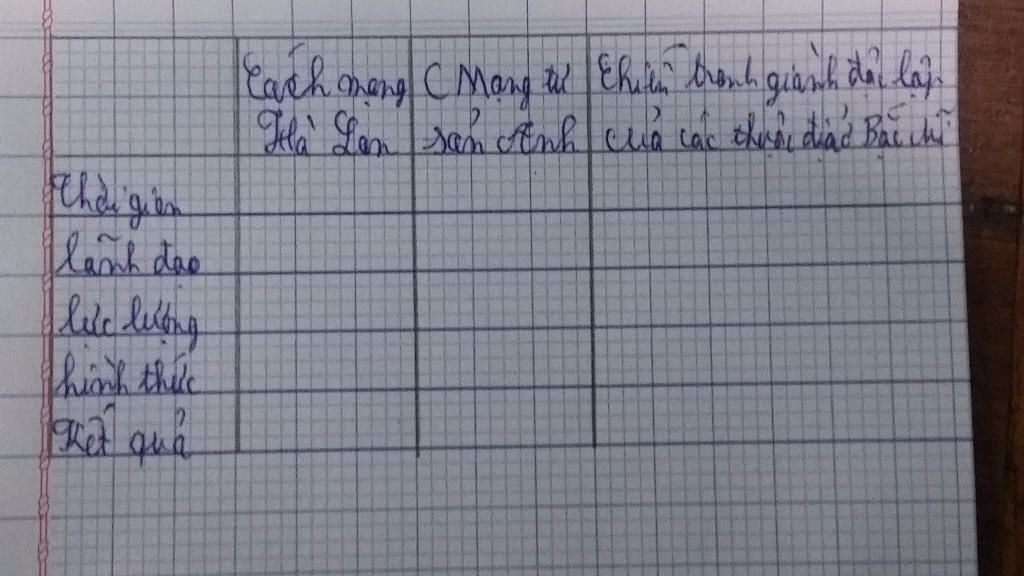 Cách mạng Hà Lan
C Mạng tư sản Anh
Chiến tranh giành độc lập của các thuộc địa ở Bắc Mĩ
Thời gian
lãnh đạo
lực lượng
hình thức
Kết quả